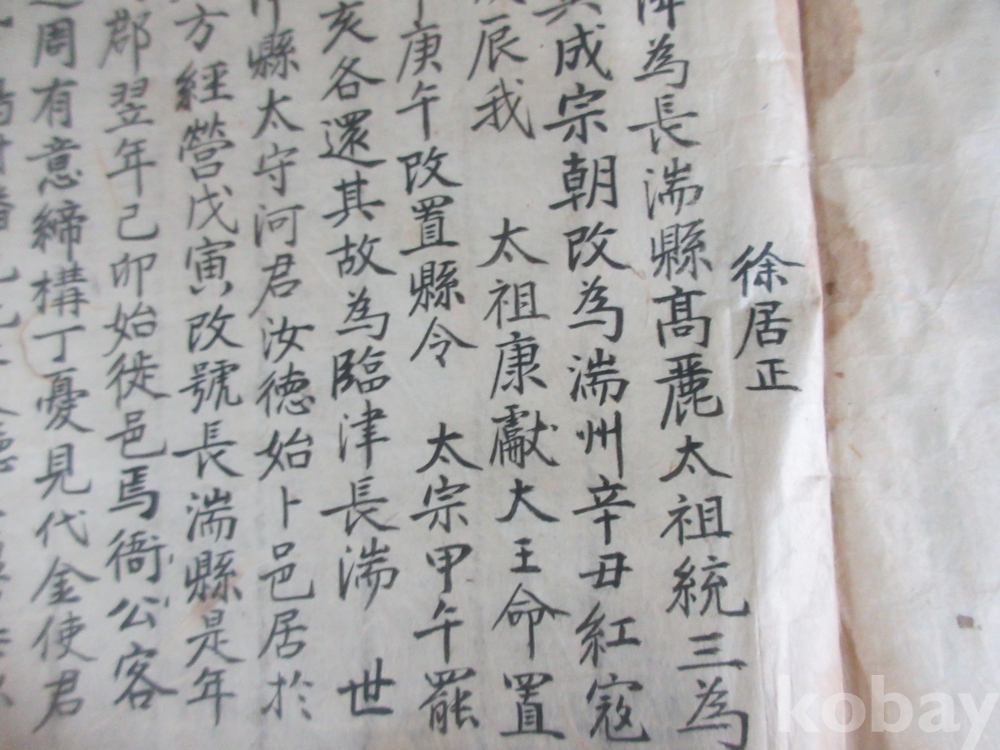 徐居正
為長湍縣高麗太祖統三為
成宗朝改為湍州辛丑紅寇
辰我 太祖康獻大王命置
庚午改置縣令 太宗甲午罷
亥各還其故為臨津長湍 世
縣太守河君汝德始卜邑居於
方經營戊寅改號長湍縣是年
郡翌年己卯始徙邑焉衙公客
周有意締構丁憂見代金使君
kobay